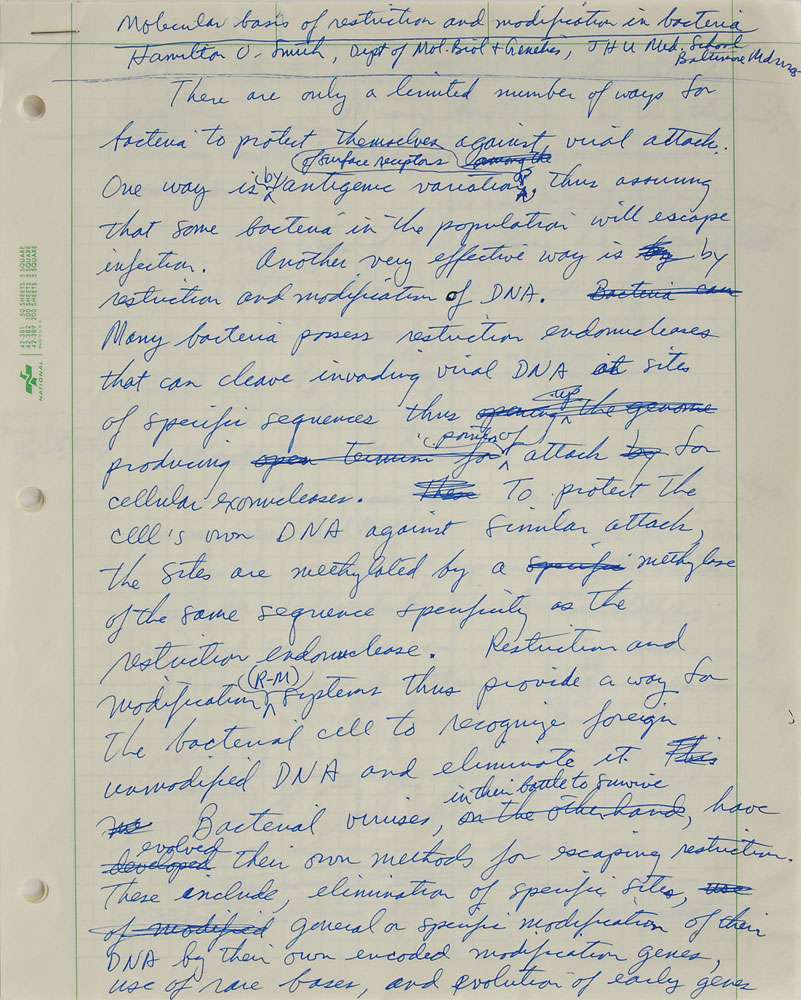 Molecular basis of restriction and modification in bacteria
Hamilton O. Smith, Dept of Mol. Biol & Genetics, JHU Med. School
Baltimore Md
There are only a limited number of ways for
bacteria to protect themselves against viral attack.
of surface receptors among the
One way is by antigenic variation, thus assuring
that some bacteria in the population will escape
infection. Another very effective way is by by
restriction and modification of DNA. Bacteria can
Many bacteria possess restriction endonucleases
that can cleave invading viral DNA at sites
up
of specific sequences thus opening the genome
points of
producing open termini for attack by for
cellular exonucleases. These To protect the
cell's own DNA against similar attack,
the sites are methylated by a specific methylase
of the same sequence specificity as the
restriction endonuclease. Restriction and
(R-M)
modification systems thus provide a way for
the bacterial cell to recognize foreign
unmodified DNA and eliminate it. This
in their battle to survive
Bacterial viruses, on the other hand, have
evolved
developed their own methods for escaping restriction.
These include, elimination of specific sites, use
of modified general or specific modification of their
DNA by their own encoded modification genes,
use of rare bases, and evolution of early genes
NATIONAL
42-381 50 SHEETS 5 SQUARE
42-382 100 SHEETS 5 SQUARE
42-389 200 SHEETS 5 SQUARE